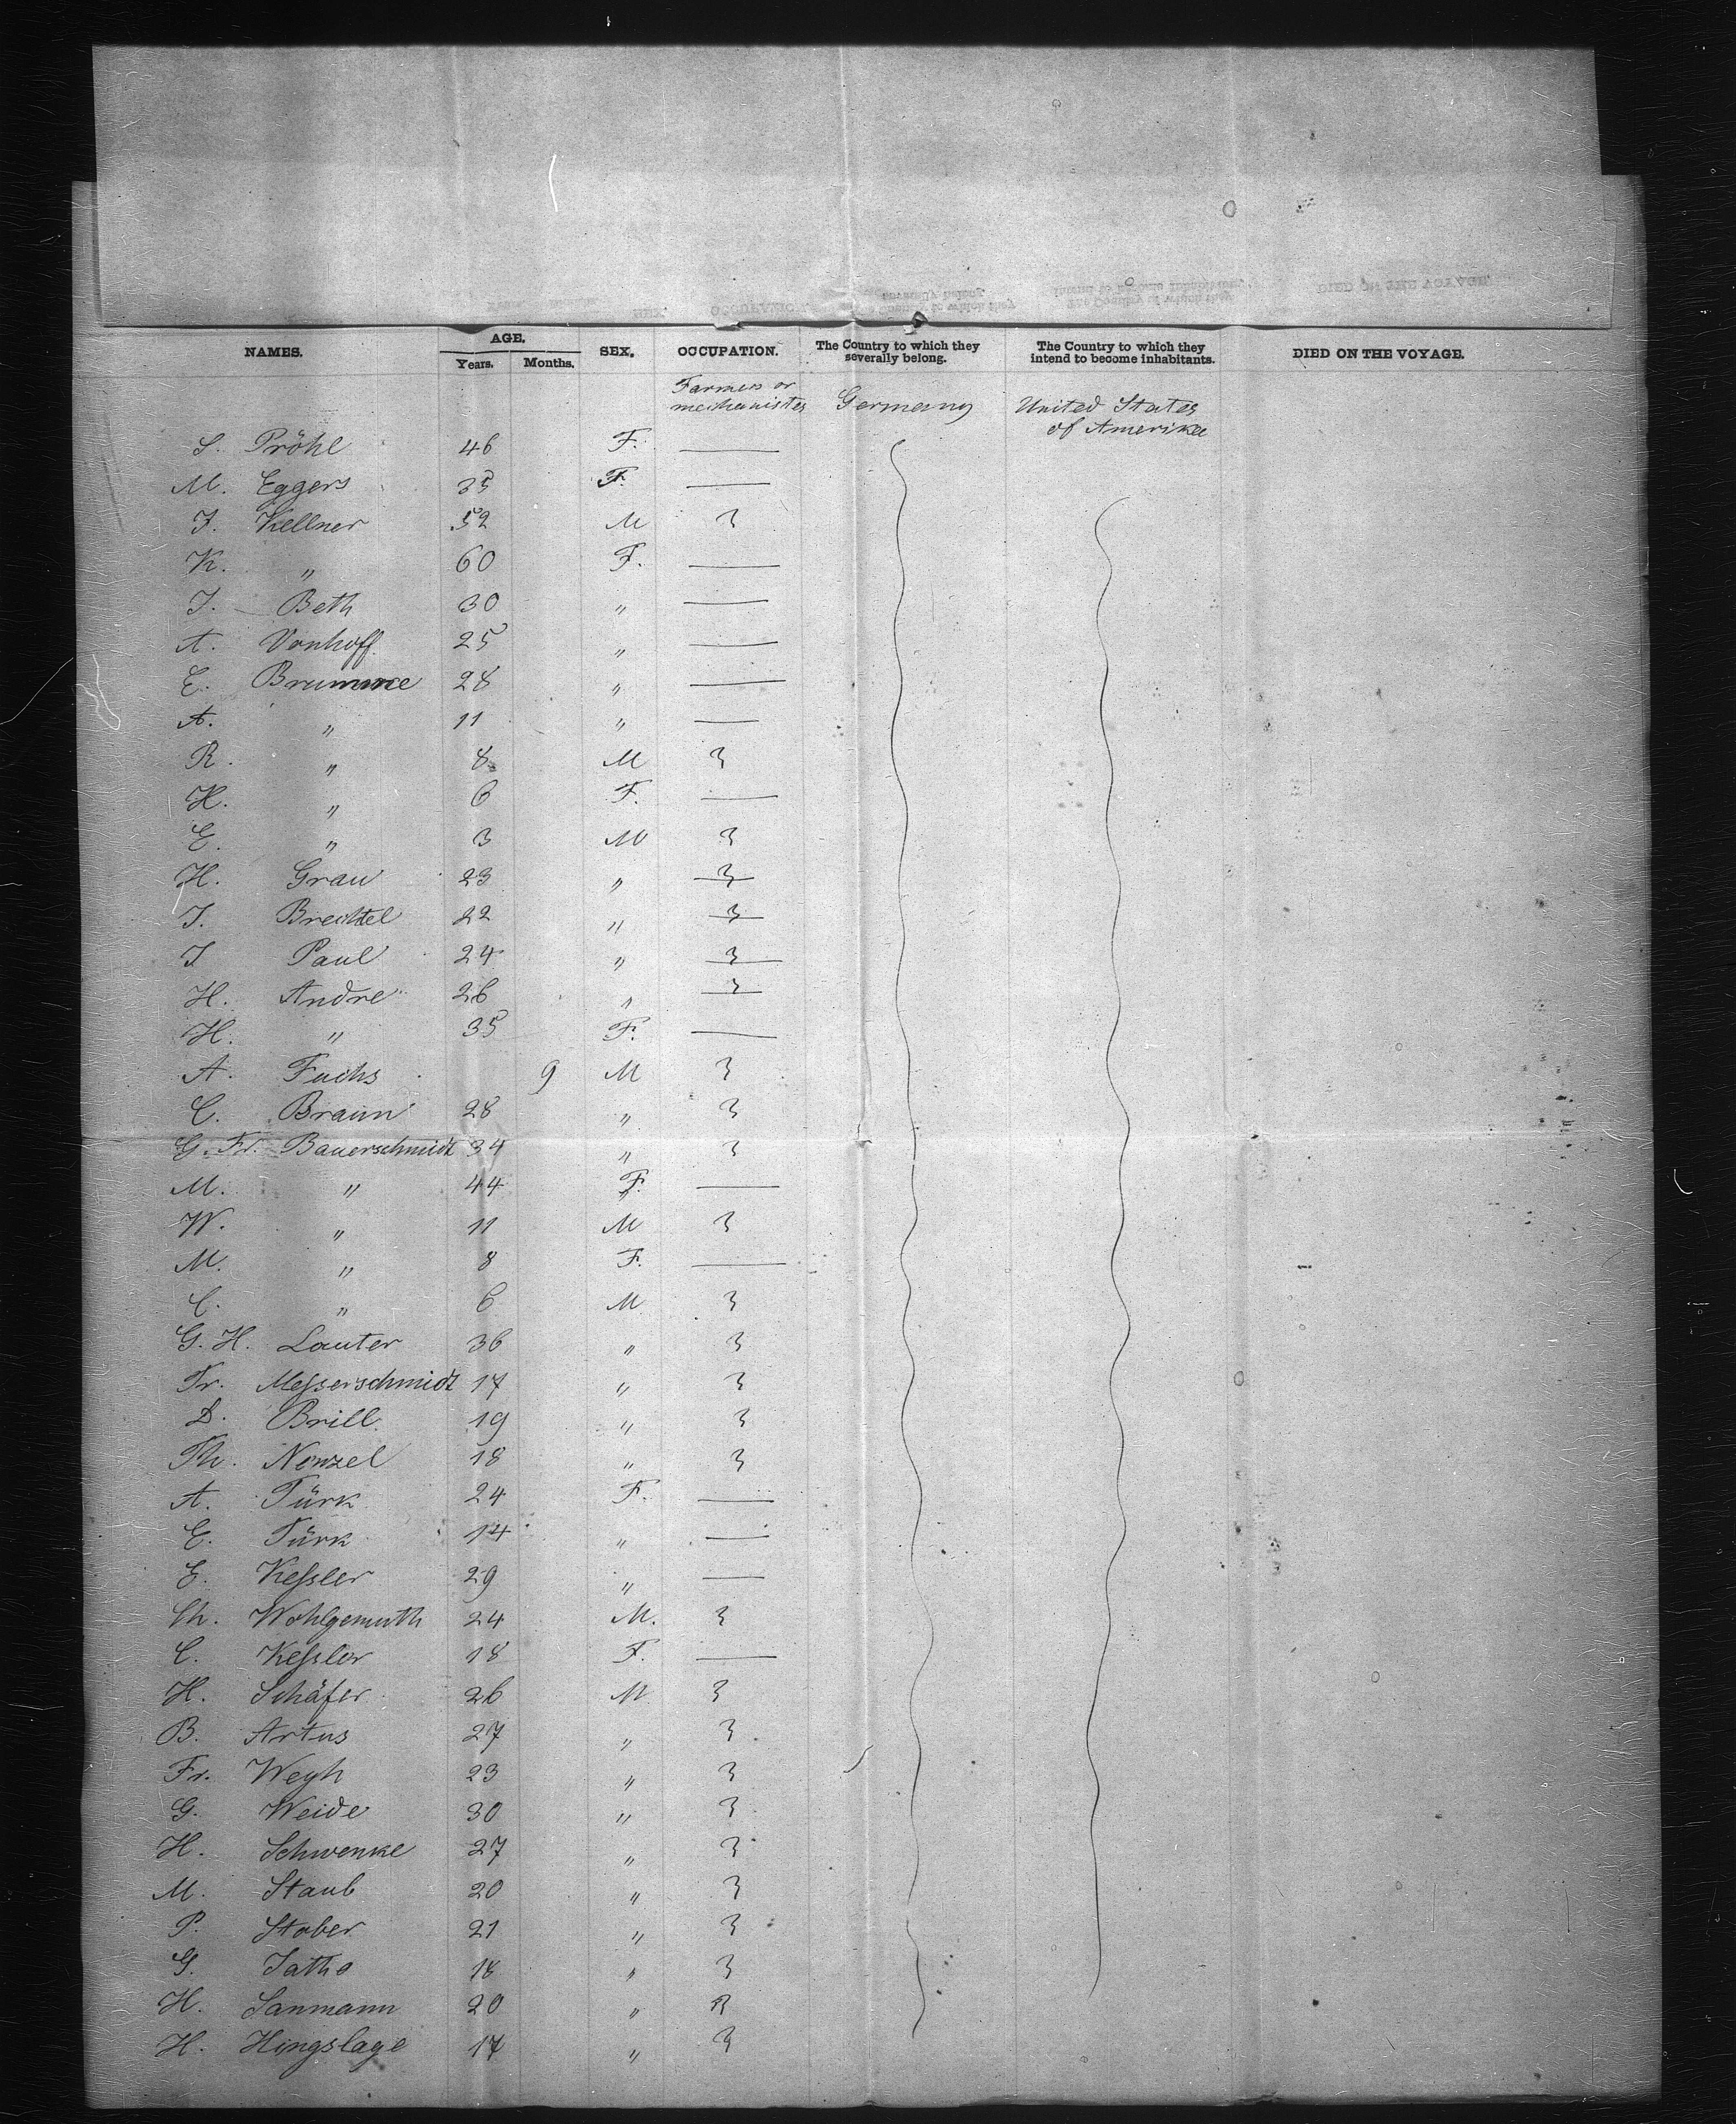 NAMES. AGE. SEX. OCCUPATION. The Country to which they severally belong. The Country to which they intend to become inhabitants. DIED ON THE VOYAGE.
Years. Months.
Farmers or mechanistes Germany United States of Amerika
S. Pröhl 46 F. —
M. Eggers 35 F. —
J. Kellner 52 M 3
K. " 60 F. —
J. Beth 30 " —
A. Vonhoff 25 " —
E. Brumme 28 " —
A. " 11 " —
R. " 8 M 3
H. " 6 F. —
E. " 3 M 3
H. Grau 23 " 3
J. Brechtel 22 " 3
J Paul 24 " 3
H. Andre 26 " 3
H. " 35 F. —
A. Fuchs 9 M 3
C. Braun 28 " 3
G. Fr. Bauerschmidt 34 " 3
M. " 44 F. —
W. " 11 M 3
M. " 8 F. —
C. " 6 M 3
G. H. Lauter 36 " 3
Fr. Meßerschmidt 17 " 3
D. Brill 19 " 3
Th. Nenzel 18 " 3
A. Türk 24 F. —
E. Türk 14 " —
E. Keßler 29 " —
Ch. Wohlgemuth 24 M. 3
C. Keßler 18 F. —
H. Schäfer 26 M 3
B. Artus 27 " 3
Fr. Weyh 23 " 3
G. Weide 30 " 3
H. Schwenke 27 " 3
M. Staub 20 " 3
P. Stober 21 " 3
G. Jatho 18 " 3
H. Sanmann 20 " 3
H. Hingslage 17 " 3